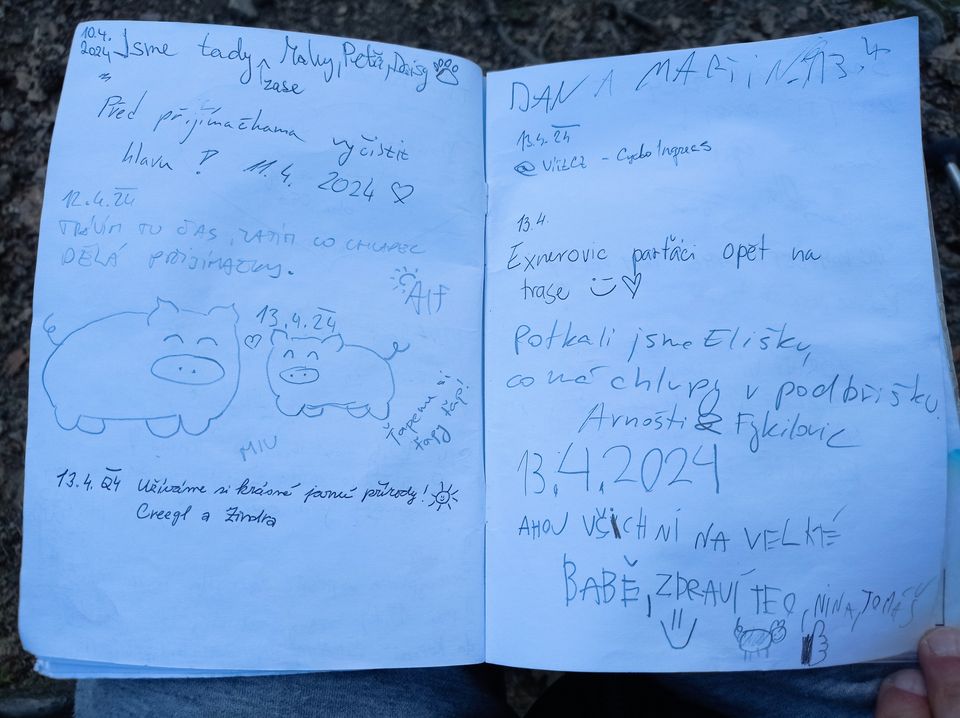 10.4.
2024 Jsme tady zase Maky, Peťa, Daisy
Před přijímačkama vyčistit
hlavu! 11.4. 2024
12.4.24
TRÁVIM TU ČAS, ZATÍM CO CHLAPEC
DĚLÁ PŘIJIMAČKY.
Alf
13.4.24
Ťapeme si
ťapy ťapí
MIU
13.4.24 Užíváme si krásné jarní přírody!
Creegl a
DANA MARTIN 13.4
13.4.24
@VítCZ - CykloIngress
13.4.
Exnerovic parťáci opět na
trase
Potkali jsme Elišku,
co má chlupy v podbřišku.
Arnošti & Fykilovic
13.4.2024
AHOJ VŠICHNÍ NA VELKÉ
BABĚ, ZDRAVÍ TEO, NINA, TOMÁŠ